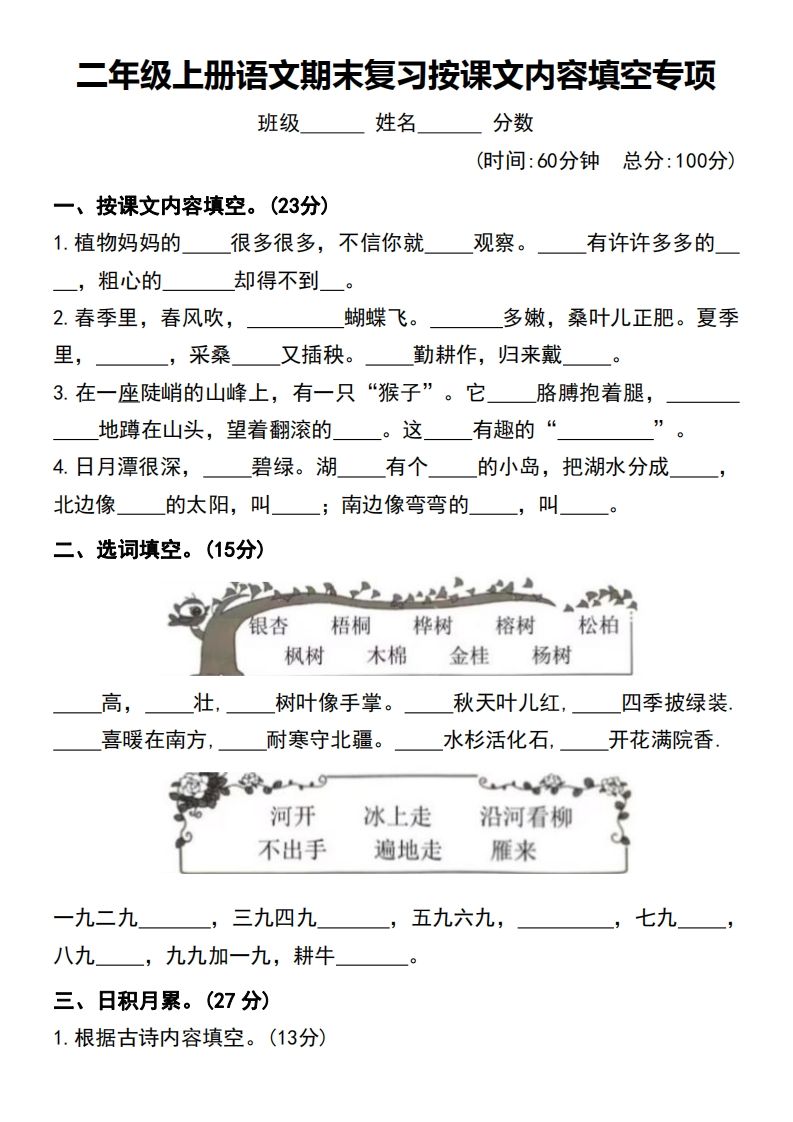 二年级上册语文期末复习按课文内容填空专项
班级______ 姓名______ 分数
(时间:60分钟 总分:100分)
一、按课文内容填空。(23分)
1.植物妈妈的____很多很多，不信你就____观察。____有许许多多的__
__，粗心的______却得不到__。
2.春季里，春风吹，________蝴蝶飞。______多嫩，桑叶儿正肥。夏季
里，______，采桑____又插秧。____勤耕作，归来戴____。
3.在一座陡峭的山峰上，有一只“猴子”。它____胳膊抱着腿，______
____地蹲在山头，望着翻滚的____。这____有趣的“________”。
4.日月潭很深，____碧绿。湖____有个____的小岛，把湖水分成____，
北边像____的太阳，叫____；南边像弯弯的____，叫____。
二、选词填空。(15分)
银杏 梧桐 桦树 榕树 松柏
枫树 木棉 金桂 杨树
____高，____壮,____树叶像手掌。____秋天叶儿红,____四季披绿装.
____喜暖在南方,____耐寒守北疆。____水杉活化石,____开花满院香.
河开 冰上走 沿河看柳
不出手 遍地走 雁来
一九二九______，三九四九______，五九六九，________，七九____，
八九____，九九加一九，耕牛______。
三、日积月累。(27 分)
1.根据古诗内容填空。(13分)